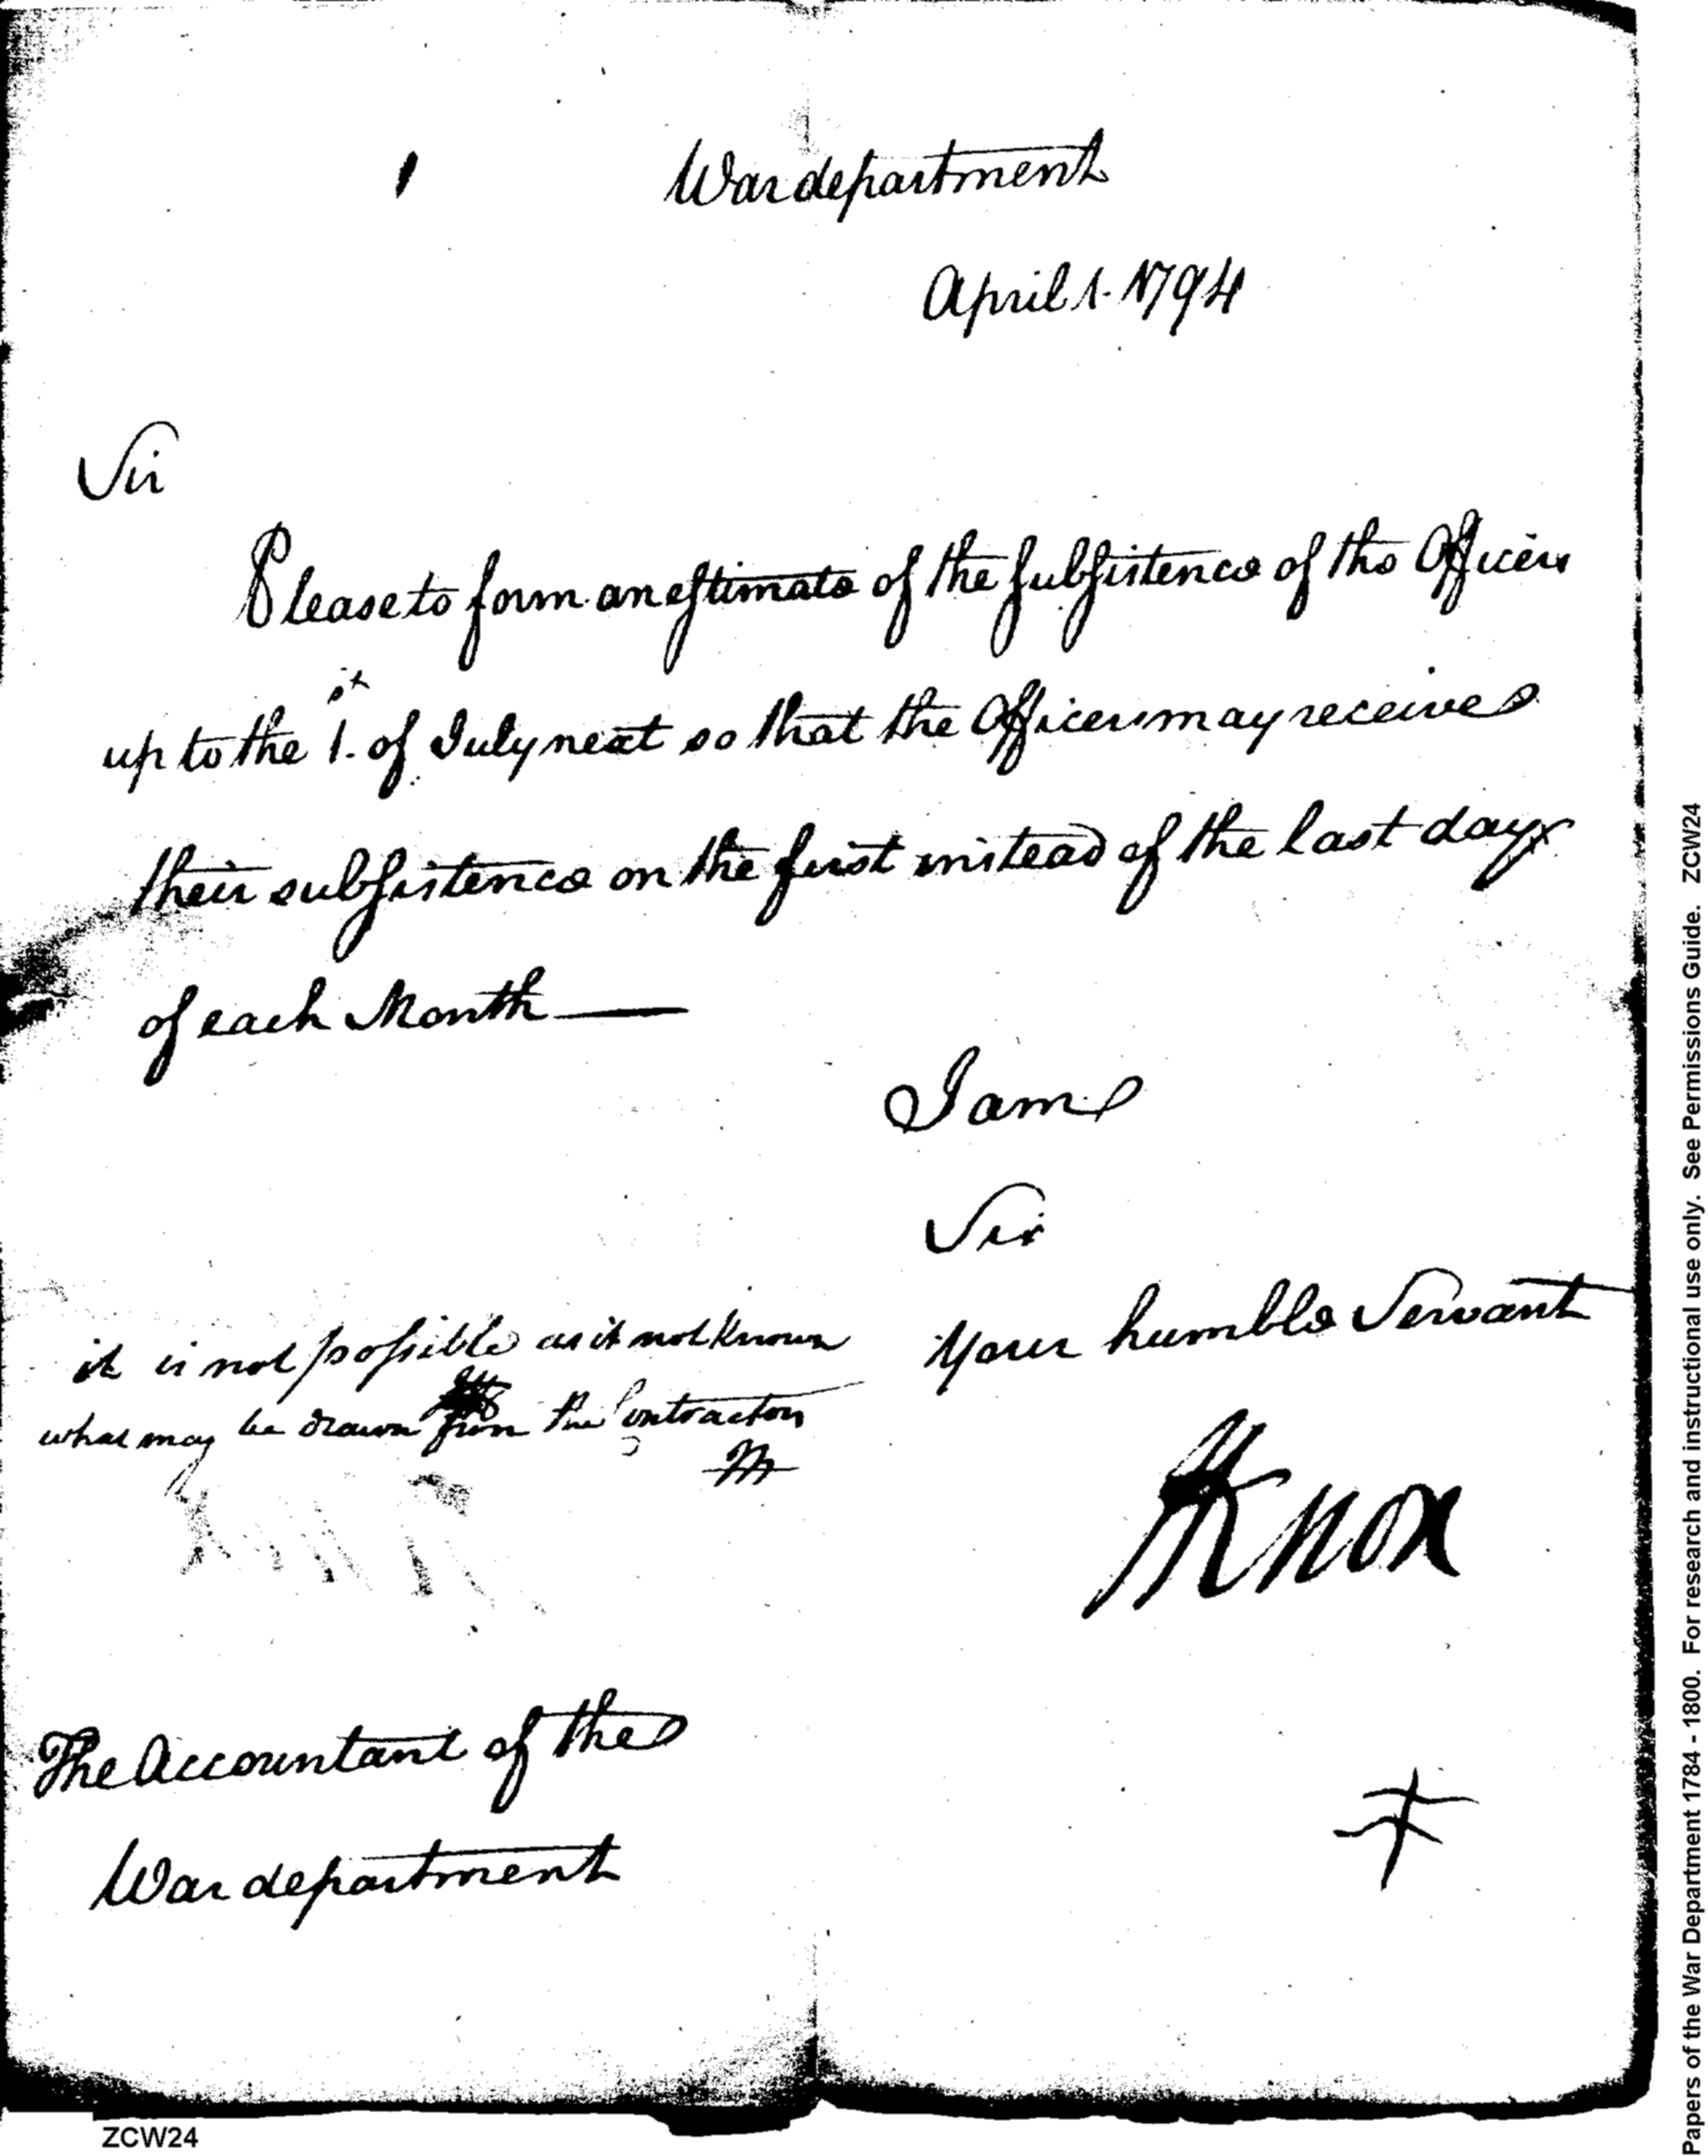 War department
April 1. 1794
Sir
Please to form an estimate of the subsistence of the Officers
up to the 1.st of July next so that the Officers may receive
their subsistence on the first instead of the last day
of each Month —
I am
Sir
Your humble Servant
it is not possible as it not known
what may be drawn from the Contractors
HKnox
The Accountant of the
War department
ZCW24
Papers of the War Department 1784 - 1800. For research and instructional use only. See Permissions Guide. ZCW24